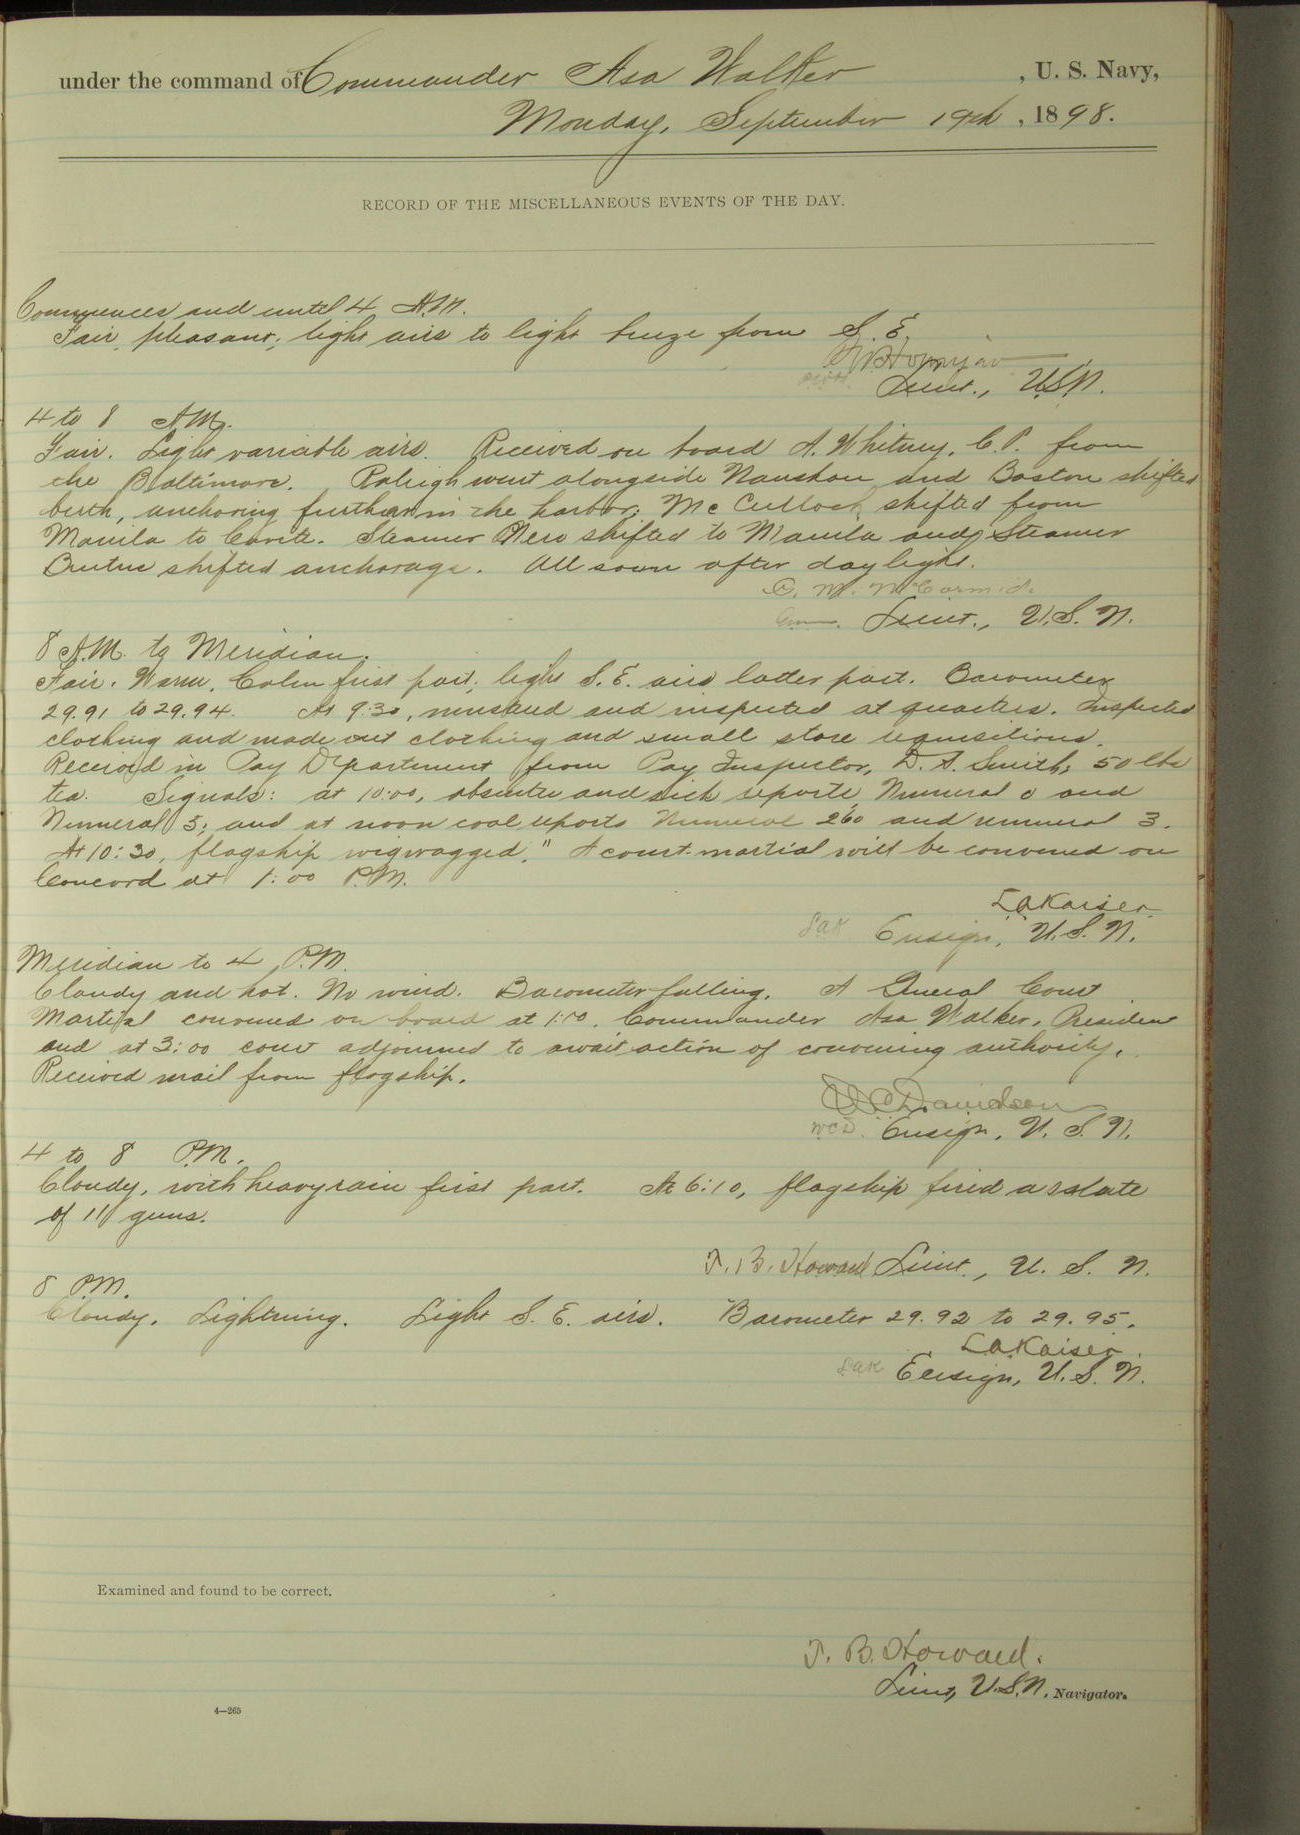 under the command of Commander Asa Walker, U. S. Navy,
Monday, September 19th, 1898.
RECORD OF THE MISCELLANEOUS EVENTS OF THE DAY.
Commences and until 4 A.M.
Fair, pleasant; light airs to light breeze from S. E.
Lieut., U.S.N.
4 to 8 A.M.
Fair. Light variable airs. Received on board A. Whitney, C.P. from
the Baltimore. Raleigh went alongside Nanshan and Boston shifted
berth, anchoring further in the harbor; McCulloch shifted from
Manila to Cavite. Steamer Nero shifted to Manila and Steamer
Brutus shifted anchorage. All soon after daylight.
C. M. McCormick
Lieut., U.S.N.
8 A.M. to Meridian.
Fair. Warm. Calm first part; light S. E. airs latter part. Barometer
29.91 to 29.94. At 9:30, mustered and inspected at quarters. Inspected
clothing and made out clothing and small store requisitions.
Received in Pay Department from Pay Inspector, D. A. Smith, 50 lbs
tea. Signals: at 10:00, absentee and sick reports, Numeral 0 and
Numeral 3; and at noon coal reports Numeral 260 and numeral 3.
At 10:30, flagship wigwagged, "A court-martial will be convened on
Concord at 1:00 P.M.
L A Kaiser
LAK Ensign, U.S.N.
Meridian to 4 P.M.
Cloudy and hot. No wind. Barometer falling. A General Court
Martial convened on board at 1:00, Commander Asa Walker, President
and at 3:00 court adjourned to await action of convening authority.
Received mail from flagship.
W C Davidson
WCD. Ensign, U. S. N.
4 to 8 P.M.
Cloudy, with heavy rain first part. At 6:10, flagship fired a salute
of 11 guns.
T. B. Howard Lieut., U. S. N.
8 P.M.
Cloudy. Lightning. Light S. E. airs. Barometer 29.92 to 29.95.
L A Kaiser.
LAK Ensign, U. S. N.
Examined and found to be correct.
T. B. Howard.
Lieut, U.S.N., Navigator.
4—265